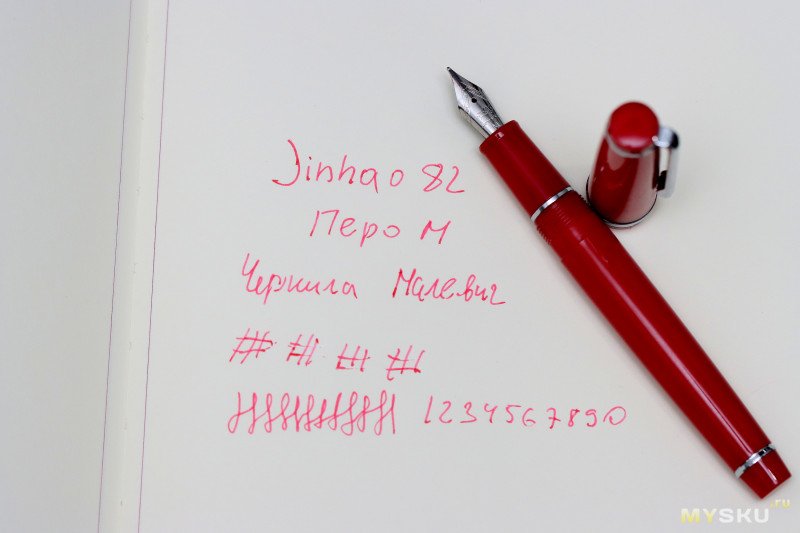 Jinhao 82
Перо М
Чернила Малевич
1234567890
MYSKU.ru